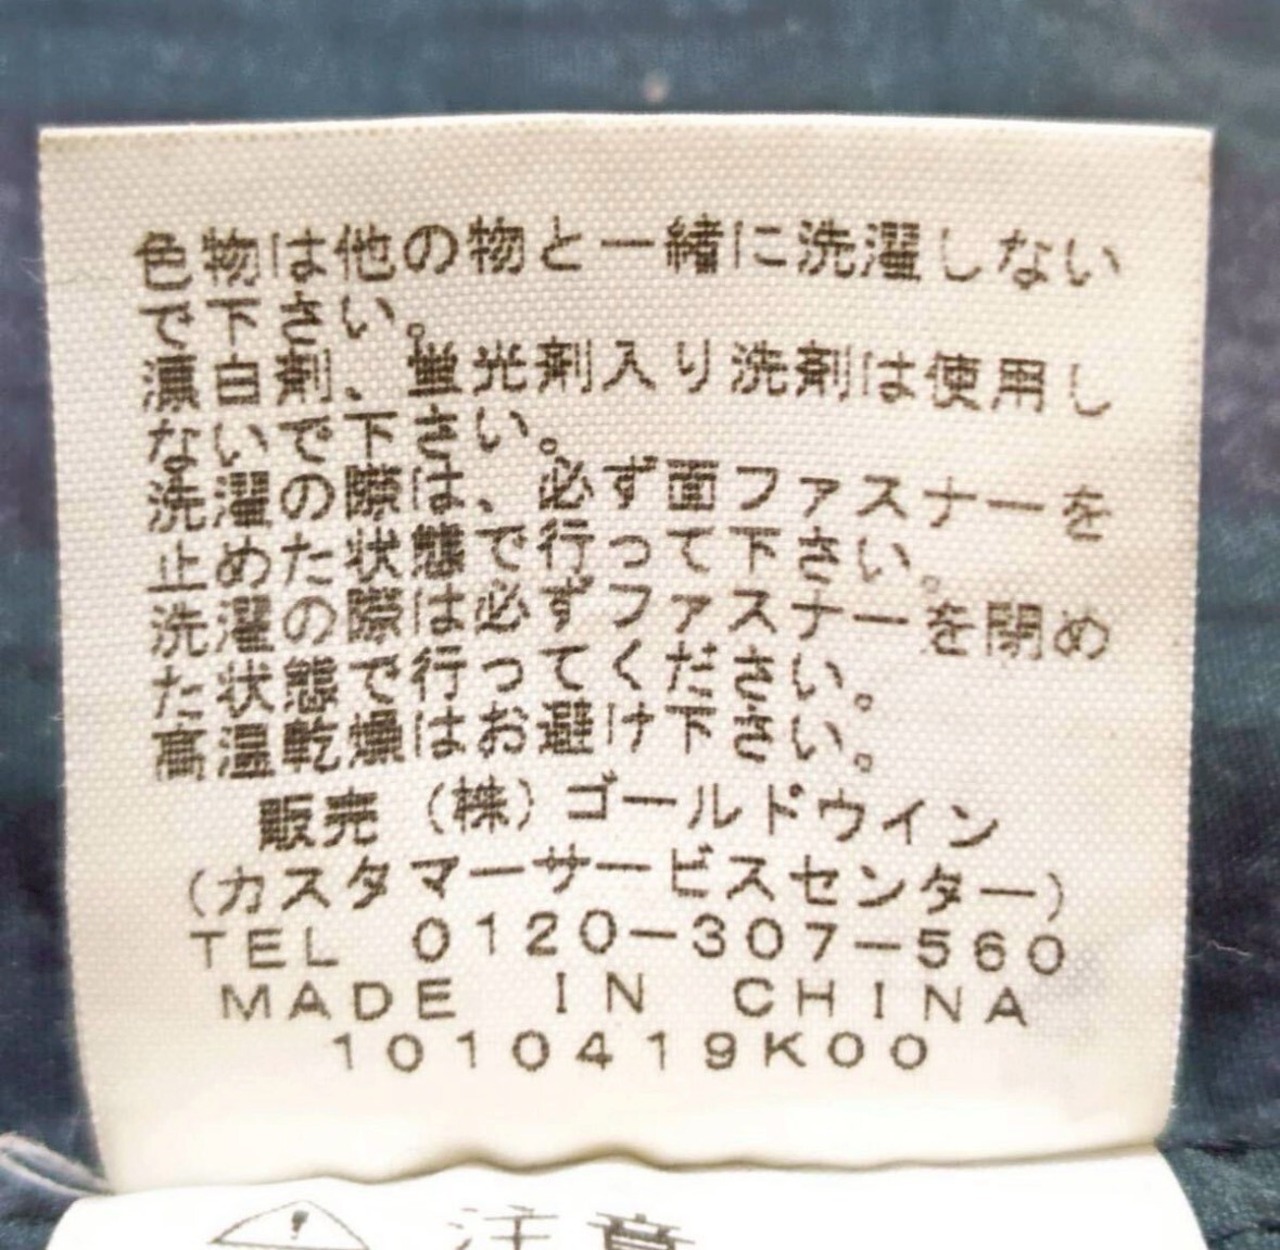 色物は他の物と一緒に洗濯しない
で下さい。
漂白剤、蛍光剤入り洗剤は使用し
ないで下さい。
洗濯の際は、必ず面ファスナーを
止めた状態で行って下さい。
洗濯の際は必ずファスナーを閉め
た状態で行ってください。
高温乾燥はお避け下さい。
販売（株）ゴールドウイン
（カスタマーサービスセンター）
TEL 0120-307-560
MADE IN CHINA
1010419K00
注意